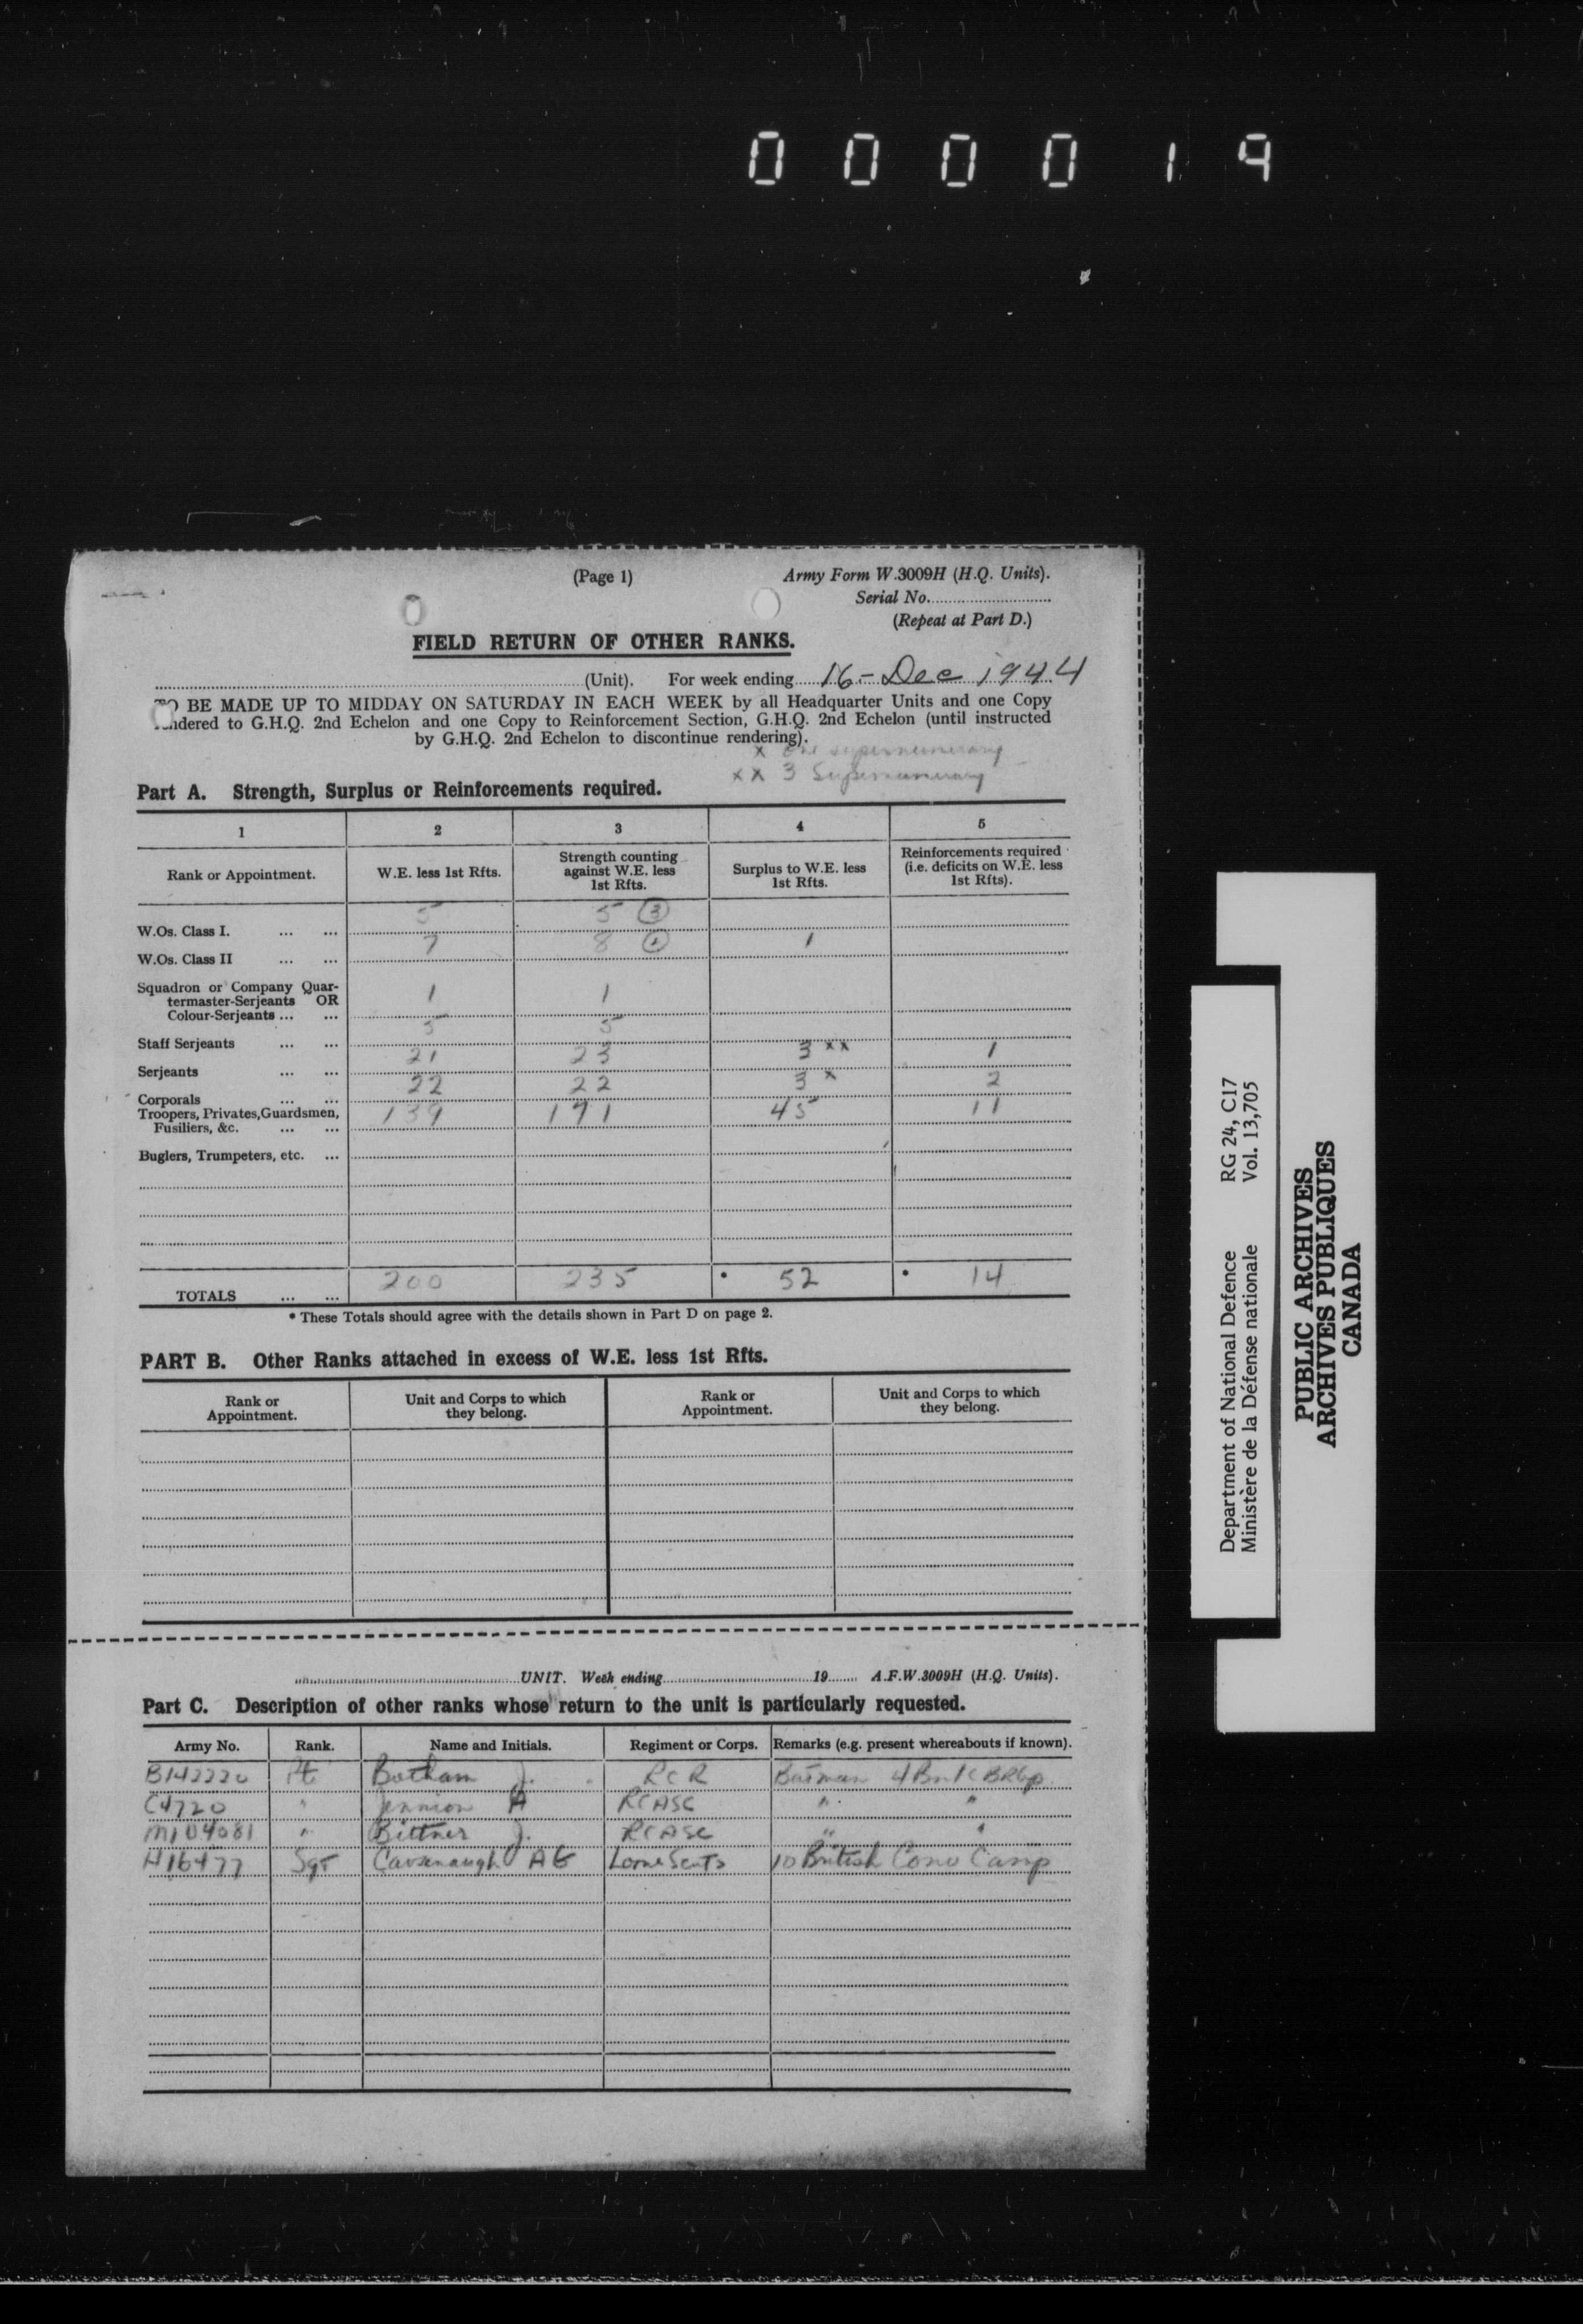 000019
(Page 1) Army Form W.3009H (H.Q. Units).
Serial No..............................
(Repeat at Part D.)
FIELD RETURN OF OTHER RANKS.
(Unit). For week ending 16-Dec 1944
TO BE MADE UP TO MIDDAY ON SATURDAY IN EACH WEEK by all Headquarter Units and one Copy
rendered to G.H.Q. 2nd Echelon and one Copy to Reinforcement Section, G.H.Q. 2nd Echelon (until instructed
by G.H.Q. 2nd Echelon to discontinue rendering).
x one supernumerary
xx 3 Supernumerary
Part A. Strength, Surplus or Reinforcements required.
1 2 3 4 5
Rank or Appointment. W.E. less 1st Rfts. Strength counting against W.E. less 1st Rfts. Surplus to W.E. less 1st Rfts. Reinforcements required (i.e. deficits on W.E. less 1st Rfts).
W.Os. Class I. ... ... 5 5 (3)
W.Os. Class II ... ... 7 8 (1) 1
Squadron or Company Quar-
termaster-Serjeants OR
Colour-Serjeants ... ... 1 1
Staff Serjeants ... ... 5 5
Serjeants ... ... 21 23 3 xx 1
Corporals ... ... 22 22 3 x 2
Troopers, Privates, Guardsmen,
Fusiliers, &c. ... ... 139 171 45 11
Buglers, Trumpeters, etc. ...
TOTALS ... ... 200 235 • 52 • 14
• These Totals should agree with the details shown in Part D on page 2.
PART B. Other Ranks attached in excess of W.E. less 1st Rfts.
Rank or Appointment. Unit and Corps to which they belong. Rank or Appointment. Unit and Corps to which they belong.
UNIT. Week ending 19 A.F.W.3009H (H.Q. Units).
Part C. Description of other ranks whose return to the unit is particularly requested.
Army No. Rank. Name and Initials. Regiment or Corps. Remarks (e.g. present whereabouts if known).
B142220 Pte Botham J. RCR Batman 4 Bn
C4720 " A RCASC " "
M104081 " Bittner J. RCASC " "
H16477 Sgt Cavanaugh AG Lorne Scots 10 British Conv Camp
Department of National Defence RG 24, C17
Ministère de la Défense nationale Vol. 13,705
PUBLIC ARCHIVES
ARCHIVES PUBLIQUES
CANADA